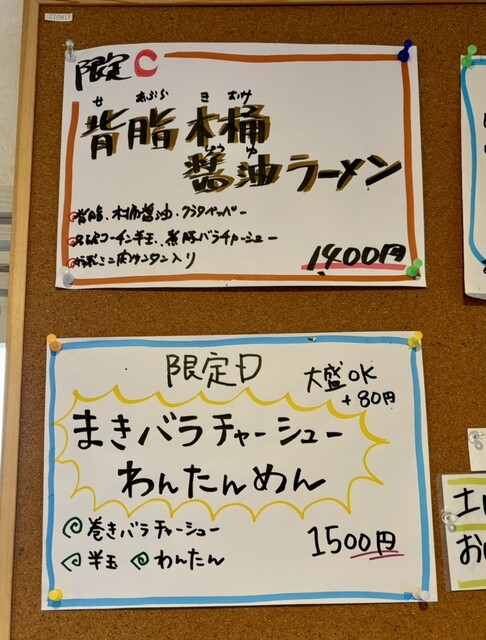 限定C
せ あぶら き おけ
背脂 木桶
しょう ゆ
醤油ラーメン
背脂、木桶醤油、クラタペッパー
名古屋コーチン半玉、煮豚バラチャーシュー
ミニ肉ワンタン入り
1400円
限定D
大盛OK
+80円
まきバラチャーシュー
わんたんめん
巻きバラチャーシュー
半玉 わんたん
1500円